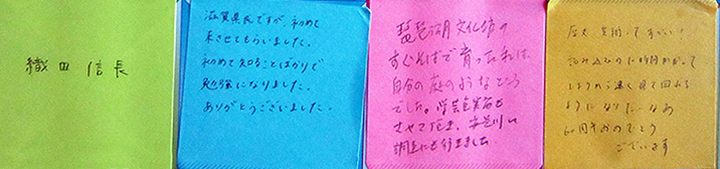 織田信長
滋賀県民ですが、初めて
来させてもらいました。
初めて知ることばかりで
勉強になりました。
ありがとうございました。
琵琶湖文化館の
すぐそばで育った私は、
自分の庭のようなところ
でした。学芸員実習も
させて頂き、安曇川の
調査にも行きました
歴史を知ってすごい!
時間かかって
見て回れる
ようになりたいなあ
60周年おめでとう
ございます